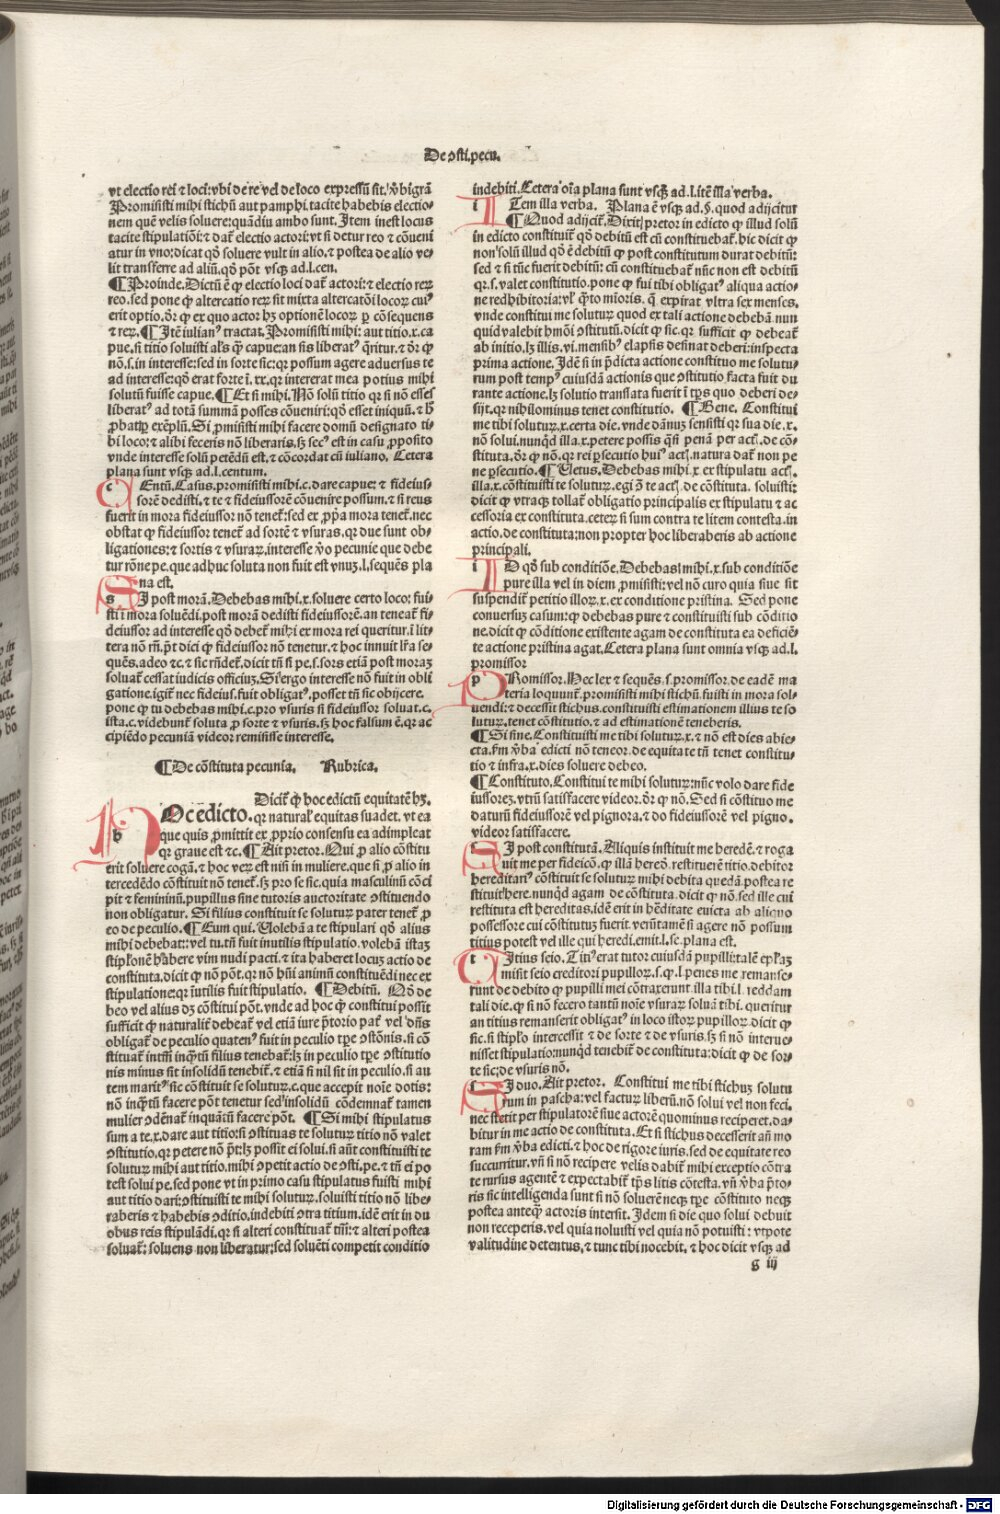 De ꝯsti.pecu.
vt electio rei ⁊ loci: vbi de re vel de loco expressū sit. vbi grā
Promisisti mihi stichū aut pamphi. tacite habebis electio-
nem quē velis soluere: quādiu ambo sunt. Item inest locus
tacite stipulatiōi: ⁊ dat̄ electio actori: vt si detur reo ⁊ cōueni
atur in vno: dicat qd̄ soluere vult in alio. ⁊ postea de alio ve-
lit transferre ad aliū. qd̄ pōt vsqꝫ ad.l.cen.
¶ Proinde. Dictū ē ꝙ electio loci dat̄ actori: ⁊ electio reꝝ
reo. sed pone ꝙ altercatio reꝝ sit mixta altercatōi locoꝝ cui'
erit optio. dr̄ ꝙ ex quo actor hꝫ optionē locoꝝ ꝑ cōsequens
⁊ reꝝ. ¶ Itē iulian' tractat. Promisisti mihi: aut titio.x.ca
pue. si titio soluisti al's ꝙ̄ capue: an sis liberat' q̄ritur. ⁊ dr̄ ꝙ
nō.s.in interesse: sed in sorte sic: qr possum agere aduersus te
ad interesse: qd̄ erat forte ī.xx. qr intererat mea potius mihi
solutū fuisse capue. ¶ Et si mihi. Nō solū titio qr si nō esses
liberat' ad totā summā posses cōueniri: qd̄ esset iniquū. ⁊ h̄
ꝓbatꝑ exēplū. Si ꝓmisisti mihi facere domū designato ti-
bi loco: ⁊ alibi feceris nō liberaris. sꝫ sec' est in casu ꝓposito
vnde interesse solū petēdū est. ⁊ cōcordat cū iuliano. Cetera
plana sunt vsqꝫ ad.l.centum.
c Entū. Casus. promisisti mihi.c.dare capue: ⁊ fideius-
sorē dedisti. ⁊ te ⁊ fideiussorē cōuenire possum. ⁊ si reus
fuerit in mora fideiussor nō tenet̄: sed ex ꝓp̄a mora tenet̄. nec
obstat ꝙ fideiussor tenet̄ ad sortē ⁊ vsuras. qr due sunt ob-
ligationes: ⁊ sortis ⁊ vsuraꝝ. interesse v̄o pecunie que debe
tur rōne pe. que adhuc soluta non fuit est vnuꝫ.l.sequēs pla
na est.
s I post morā. Debebas mihi.x. soluere certo loco: fui-
sti ī mora soluēdi. post morā dedisti fideiussorē. an teneat̄ fi-
deiussor ad interesse qd̄ debet̄ mihi ex mora rei queritur. ī lit-
tera nō rn̄. p̄t dici ꝙ fideiussor nō tenetur. ⁊ hoc innuit lr̄a se-
quēs. adeo ⁊c. ⁊ sic rn̄det̄. dicit tn̄ si pe.s.sors etiā post moraꝫ
soluat̄ cessat iudicis officiuꝫ. Si ergo interesse nō fuit in obli
gatione. igit̄ nec fideius. fuit obligat'. posset tn̄ sic obijcere.
pone ꝙ tu debebas mihi.c.pro vsuris si fideiussor soluat.c.
ista.c.videbunt̄ soluta ꝓ sorte ⁊ vsuris. sꝫ hoc falsum ē. qr ac
cipiēdo pecuniā videor remisisse interesse.
¶ De cōstituta pecunia. Rubrica.
Dicit̄ ꝙ hoc edictū equitatē hꝫ.
h Oc edicto. qr natural' equitas suadet. vt ea
que quis ꝓmittit ex ꝓprio consensu ea adimpleat
qr graue est ⁊c. ¶ Ait pretor. Qui ꝓ alio cōstitu
erit soluere cogā. ⁊ hoc veꝝ est nisi in muliere. que si ꝓ alio in
tercedēdo cōstituit nō tenet̄. sꝫ pro se sic. quia masculinū cōci
pit ⁊ femininū. pupillus sine tutoris auctoritate ꝯstituendo
non obligatur. Si filius constituit se soluturꝫ pater tenet̄ ꝓ
eo de peculio. ¶ Eum qui. Volebā a te stipulari qd̄ alius
mihi debebat: vel tu. tn̄ fuit inutilis stipulatio. volebā istaꝫ
stipl'onē habere vim nudi pacti. ⁊ ita haberet locuꝫ actio de
constituta. dicit ꝙ nō pōt. qr nō hūi animū constituēdi nec ex
stipulatione: qr īutilis fuit stipulatio. ¶ Debitū. Qd̄ de
beo vel alius dꝫ cōstitui pōt. vnde ad hoc ꝙ constitui possit
sufficit ꝙ naturalit̄ debeat̄ vel etiā iure p̄torio pat̄ vel dn̄s
obligat̄ de peculio quaten' fuit in peculio tꝑe ꝯstōnis. si cō
stituat̄ intm̄ inq̄tū filius tenebat̄: lꝫ in peculio tꝑe ꝯstitutio
nis minus sit insolidū tenebit̄. ⁊ etiā si nil sit in peculio. si au
tem marit' sic cōstituit se soluturꝝ.c. que accepit noīe dotis:
nō inq̄tū facere pōt tenetur sed insolidū cōdemnat̄ tamen
mulier ꝯdēnat̄ inquātū facere pōt. ¶ Si mihi stipulatus
sum a te.x.dare aut titio: si ꝯstituas te soluturꝝ titio nō valet
ꝯstitutio. qr petere nō p̄t: lꝫ possit ei solui. si aūt constituisti te
soluturꝝ mihi aut titio. mihi ꝯpetit actio de ꝯsti.pe. ⁊ tn̄ ei po
test solui pe. sed pone vt in primo casu stipulatus fuisti mihi
aut titio dari: ꝯstituisti te mihi soluturꝝ. soluisti titio nō libe-
raberis ⁊ habebis ꝯditio. indebiti ꝯtra titium. idē erit in du
obus reis stipulādi. qr si alteri constituat̄ tm̄: ⁊ alteri postea
soluat̄: soluens non liberatur: sed soluēti competit conditio
indebiti. Cetera oīa plana sunt vsqꝫ ad.l.itē illa verba.
i Tem illa verba. Plana ē vsqꝫ ad.§.quod adijcitur
¶ Quod adijcit̄. Dixit pretor in edicto ꝙ illud solū
in edicto constituit̄ qd̄ debitū est cū constituebat̄. hic dicit ꝙ
non solū illud qd̄ ē debitū ꝙ post constitutum durat debitū:
sed ⁊ si tūc fuerit debitū: cū constituebat̄ nūc non est debitū
qr.s.valet constitutio. pone ꝙ fui tibi obligat' aliqua actio-
ne redhibitoria: vl' q̄nto mioris. q̄ expirat vltra sex menses.
vnde constitui me soluturꝝ quod ex tali actione debebā nun
quid valebit hmōi ꝯstitutū. dicit ꝙ sic. qr sufficit ꝙ debeat̄
ab initio. lꝫ illis.vi.mensib' elapsis desinat deberi: inspecta
prima actione. Idē si in p̄dicta actione constituo me solutu-
rum post temp' cuiusdā actionis que ꝯstitutio facta fuit du
rante actione. lꝫ solutio transfata fuerit ī tp̄s quo deberi de-
sijt. qr nihilominus tenet constitutio. ¶ Bene. Constitui
me tibi soluturꝝ.x.certa die. vnde dānuꝫ sensisti qr sua die.x.
nō solui. nunqd̄ illa.x.petere possis q̄si penā per act̄. de cō-
stituta. dr̄ ꝙ nō. qr rei ꝑsecutio hui' act̄. natura dat̄ non pe
ne ꝑsecutio. ¶ Vetus. Debebas mihi.x.ex stipulatu act̄.
illa.x.cōstituisti te soluturꝝ. egi ꝯ te act̄. de cōstituta. soluisti:
dicit ꝙ vtraqꝫ tollat̄ obligatio principalis ex stipulatu ⁊ ac
cessoria ex constituta. ceteꝝ si sum contra te litem contesta. in
actio. de constituta: non propter hoc liberaberis ab actione
principali.
i D qd̄ sub conditiōe. Debebas mihi.x.sub conditiōe
pure illa vel in diem ꝓmisisti: vel nō curo quia siue sit
suspendit̄ petitio illoꝝ.x.ex conditione pristina. Sed pone
conuersuꝫ casum: ꝙ debebas pure ⁊ constituisti sub cōditio
ne. dicit ꝙ cōditione existente agam de constituta ea deficiē-
te actione pristina agat. Cetera plana sunt omnia vsqꝫ ad.l.
promissor
p Romissor. Hec lex ⁊ sequēs.s.promissor. de eadē ma
teria loquunt̄. promisisti mihi stichū. fuisti in mora sol-
uendi: ⁊ decessit stichus. constituisti estimationem illius te so
luturꝝ. tenet cōstitutio. ⁊ ad estimationē teneberis.
¶ Si sine. Constituisti me tibi soluturꝝ.x. ⁊ nō est dies abie-
cta. fm v̄ba edicti nō teneor. de equitate tn̄ tenet constitu-
tio ⁊ infra.x.dies soluere debeo.
¶ Constituto. Constitui te mihi soluturꝝ: nūc volo dare fide
iussorez. vtrū satisfacere videor. dr̄ ꝙ nō. Sed si cōstituo me
daturū fideiussorē vel pignora. ⁊ do fideiussorē vel pigno.
videor satisfacere.
s I post constitutā. Aliquis instituit me heredē. ⁊ roga
uit me per fideicō. ꝙ illā hered. restituerē titio. debitor
hereditari' cōstituit se soluturꝝ mihi debita quedā. postea re
stituit here. nunqd̄ agam de cōstituta. dicit ꝙ nō. sed ille cui
restituta est hereditas. idē erit in hēditate euicta ab aliquo
possessore cui cōstitutuꝫ fuerit. verūtamē si agere nō possum
titius potest vel ille qui heredi. emit.l.se.plana est.
t Itius seio. Titi' erat tutor cuiusdā pupilli: talē epl'aꝫ
misit seio creditori pupilloꝝ.s.ꝙ.l.penes me remanse-
runt de debito ꝙ pupilli mei cōtraxerunt. illa tibi.l.reddam
tali die. ꝙ si nō fecero tantū noīe vsuraꝝ soluā tibi. queritur
an titius remanserit obligat' in loco istoꝝ pupilloꝝ. dicit ꝙ
sic. si stipl'o intercessit ⁊ de sorte ⁊ de vsuris. sꝫ si nō interue-
nisset stipulatio: nunqd̄ tenebit̄ de constituta: dicit ꝙ de sor-
te sic: de vsuris nō.
s I duo. Ait pretor. Constitui me tibi stichuꝫ solutu
rum in pascha: vel facturꝝ liberū. nō solui vel non feci.
nec stetit per stipulatorē siue actorē quominus reciperet. da-
bitur in me actio de constituta. Et si stichus decesserit an̄ mo
ram fm v̄ba edicti. ⁊ hoc de rigore iuris. sed de equitate reo
succurritur. vn̄ si nō recipere velis dabit̄ mihi exceptio cōtra
te rursus agentē ⁊ expectabit̄ tp̄s litis cōtesta. vn̄ v̄ba p̄to-
ris sic intelligenda sunt si nō soluerē necqꝫ tꝑe cōstituto necqꝫ
postea anteq̄ꝫ actoris intersit. Idem si die quo solui debuit
non receperis. vel quia noluisti vel quia nō potuisti: vtpote
valitudine detentus. ⁊ tunc tibi nocebit. ⁊ hoc dicit vsqꝫ ad
g iij
Digitalisierung gefördert durch die Deutsche Forschungsgemeinschaft - DFG